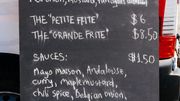 THE "PETITE FRITE" $6
THE "GRANDE FRITE" $8.50
SAUCES: $1.50
mayo maison, Andalouse,
curry, maple mustard,
chili spice, Belgian onion,